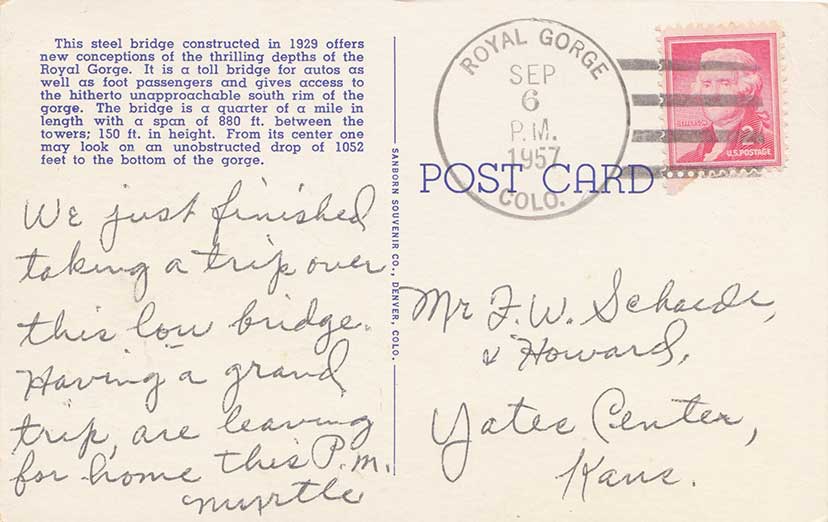 This steel bridge constructed in 1929 offers
new conceptions of the thrilling depths of the
Royal Gorge. It is a toll bridge for autos as
well as foot passengers and gives access to
the hitherto unapproachable south rim of the
gorge. The bridge is a quarter of a mile in
length with a span of 880 ft. between the
towers; 150 ft. in height. From its center one
may look on an unobstructed drop of 1052
feet to the bottom of the gorge.
We just finished
taking a trip over
this low bridge.
Having a grand
trip, are leaving
for home this P.m.
Myrtle
SANBORN SOUVENIR CO., DENVER, COLO.
ROYAL GORGE
SEP
6
P.M.
1957
COLO.
JEFFERSON
2¢
U.S. POSTAGE
POST CARD
Mr F.W. Schaede,
& Howard,
Yates Center,
Kans.